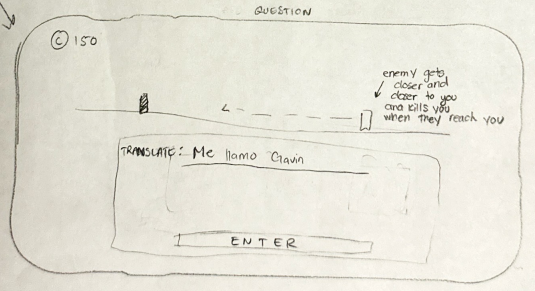 QUESTION
© 150
enemy gets
closer and
closer to you
and kills you
when they reach you
TRANSLATE: Me llamo Gavin
ENTER